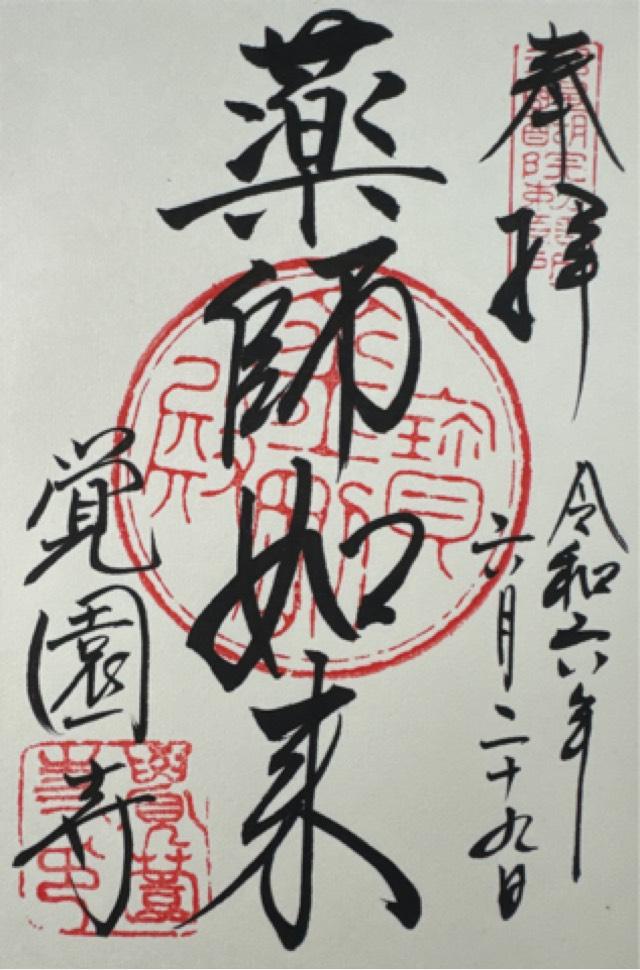 奉拝
令和六年
六月二十九日
薬師如来
覚園寺